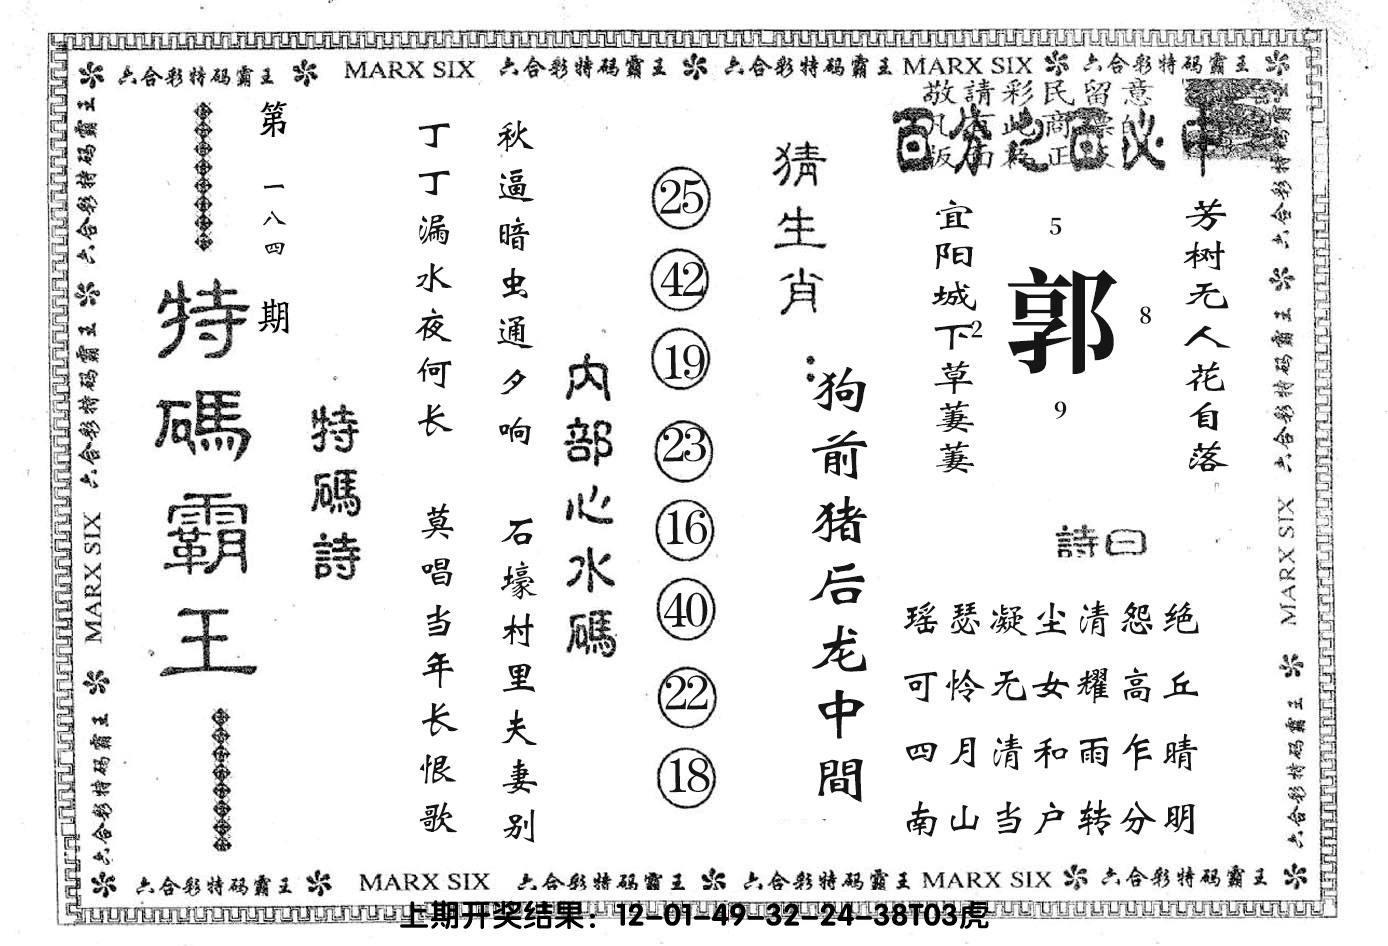 六合彩特码霸王 MARX SIX 六合彩特码霸王 六合彩特码霸王 MARX SIX 六合彩特码霸王
敬請彩民留意
百分之百必中
第一八四期
特碼霸王
特碼詩
丁丁漏水夜何长
秋逼暗虫通夕响
莫唱当年长恨歌
石壕村里夫妻别
内部心水碼
25
42
19
23
16
40
22
18
猜生肖：
狗前猪后龙中間
宜阳城下草萋萋
5
2
郭
8
9
芳树无人花自落
詩曰
瑶瑟凝尘清怨绝
可怜无女耀高丘
四月清和雨乍晴
南山当户转分明
六合彩特码霸王 MARX SIX 六合彩特码霸王
六合彩特码霸王 MARX SIX 六合彩特码霸王
六合彩特码霸王 MARX SIX 六合彩特码霸王 六合彩特码霸王 MARX SIX 六合彩特码霸王
上期开奖结果：12-01-49-32-24-38T03虎